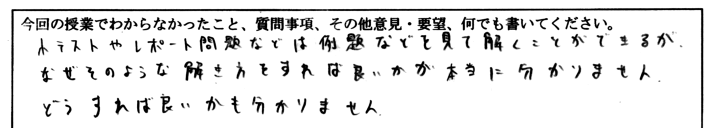 今回の授業でわからなかったこと、質問事項、その他意見・要望、何でも書いてください。
小テストやレポート問題などは例題などを見て解くことができるが、
なぜそのような解き方をすれば良いかが本当に分かりません。
どうすれば良いかも分かりません。